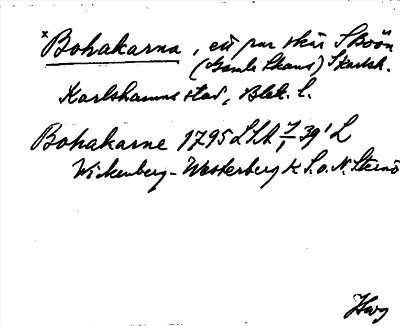 x Bohakarna, ett par skär S Boön
(Gamla Skans) S Karlsh.
Karlshamns stad, Blek. l.
Bohakarne 1795 LSA 39' L
Wickenberg-Westerberg k S.o.N. Sternö